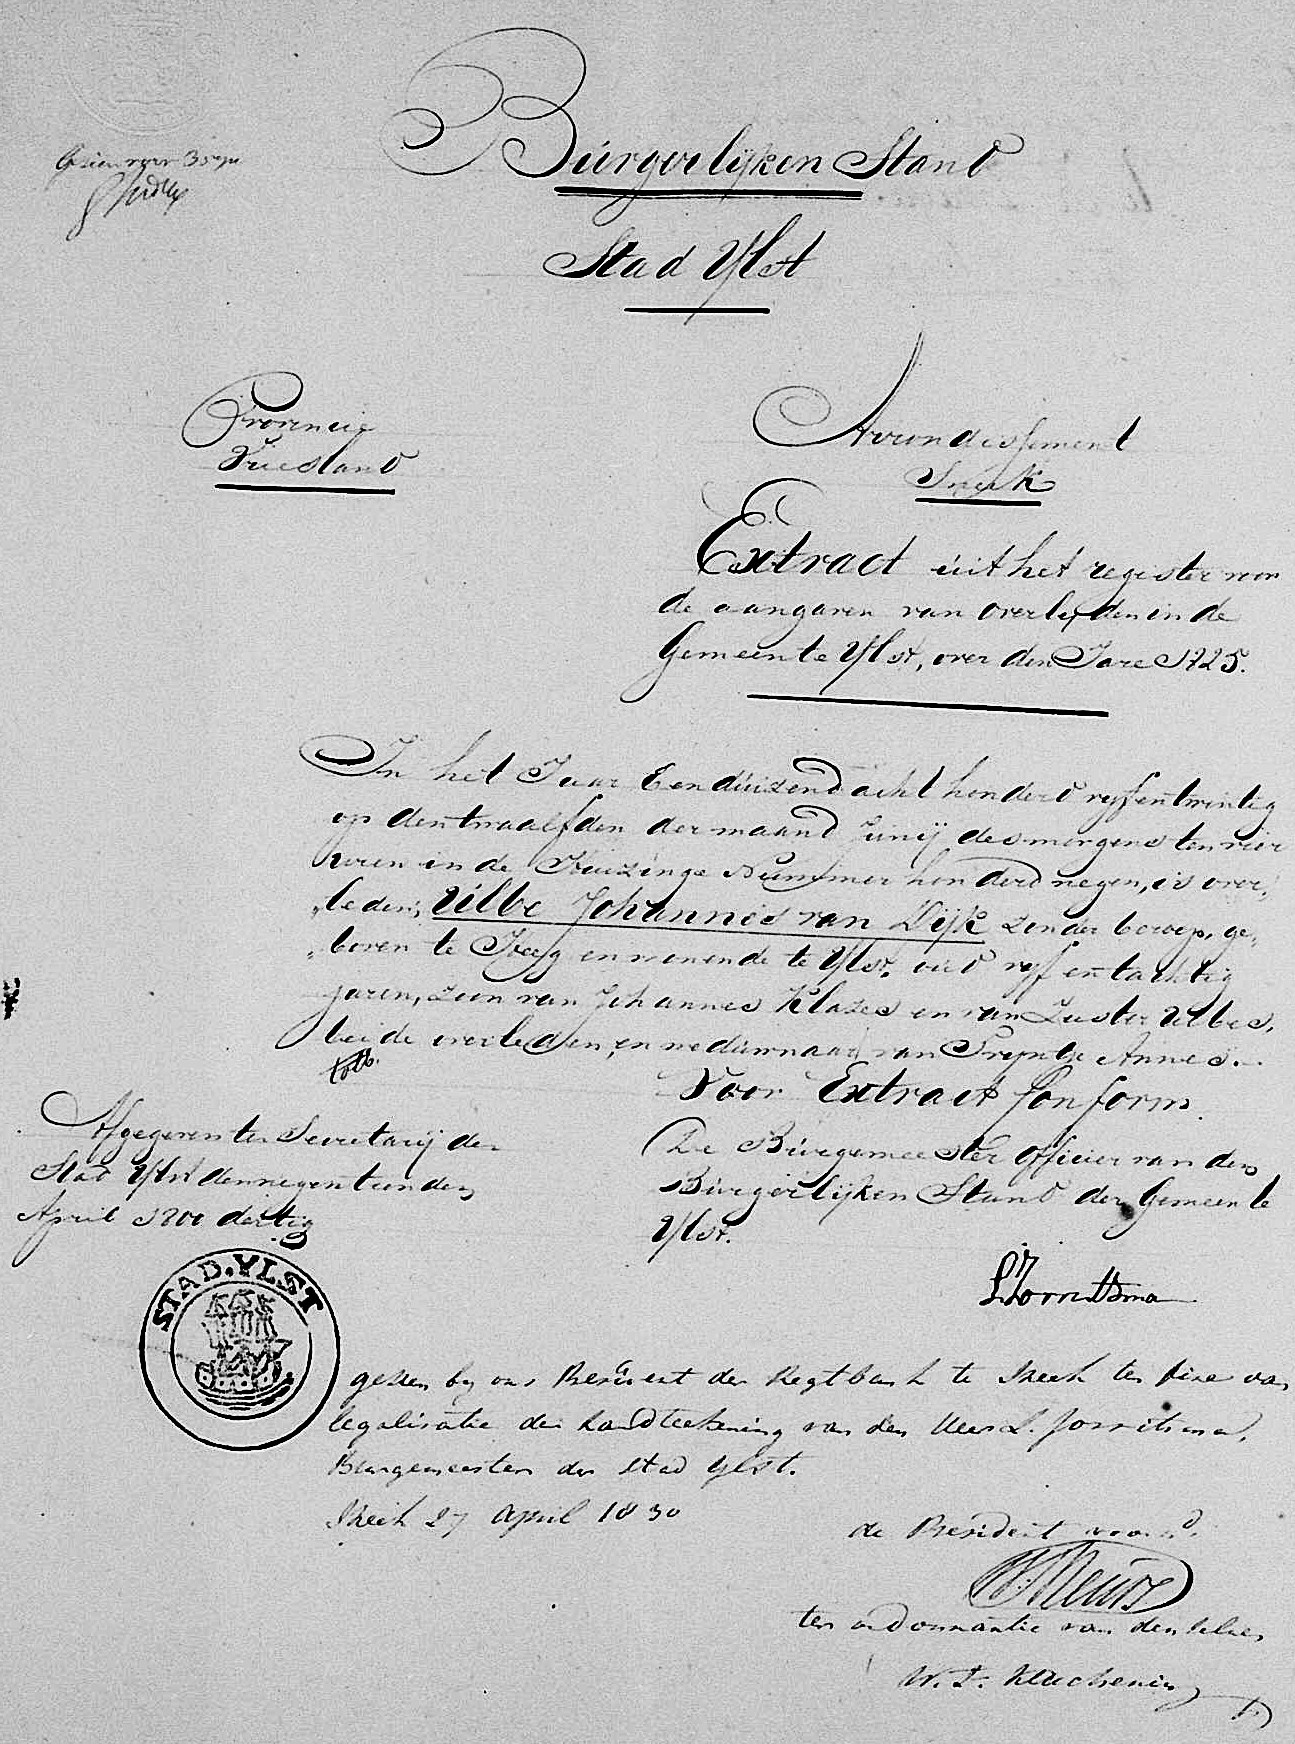 Burgerlijken Stand
Stad Ylst
Provincie
Vriesland
Arrondissement
Sneek
Extract uit het register van
de aangaven van overlyden in de
Gemeente Ylst, over den Jare 1825.
In het Jaar Een duizend acht honderd vyf en twintig
op den twaalfden der maand Junij des morgens ten vier
uren in de Huizinge Nummer honderd negen, is over„
„leden, Uilbe Johannes van Dijk zonder beroep, ge„
„boren te Heeg en wonende te Ylst. oud vyf en tachtig
jaren, zoon van Johannes Klazes en van Zuster Uilbes,
beide overleden, en weduwnaar van Tryntje Annes.
Voor Extract Conform.
Afgegeven ter Secretarij der
Stad Ylst den negentienden
April 1800 dertig
De Burgemeester Officier van den
Burgerlijken Stand der Gemeente
Ylst.
L Jorritsma
STAD. YLST
gezien by ons President der Regtbank te Sneek ten fine van
legalisatie der handteekening van den Heer L. Jorritsma,
Burgemeester der stad Ylst.
Sneek 27 april 1830
de President voorn.d
ter ordonnantie van denzelven